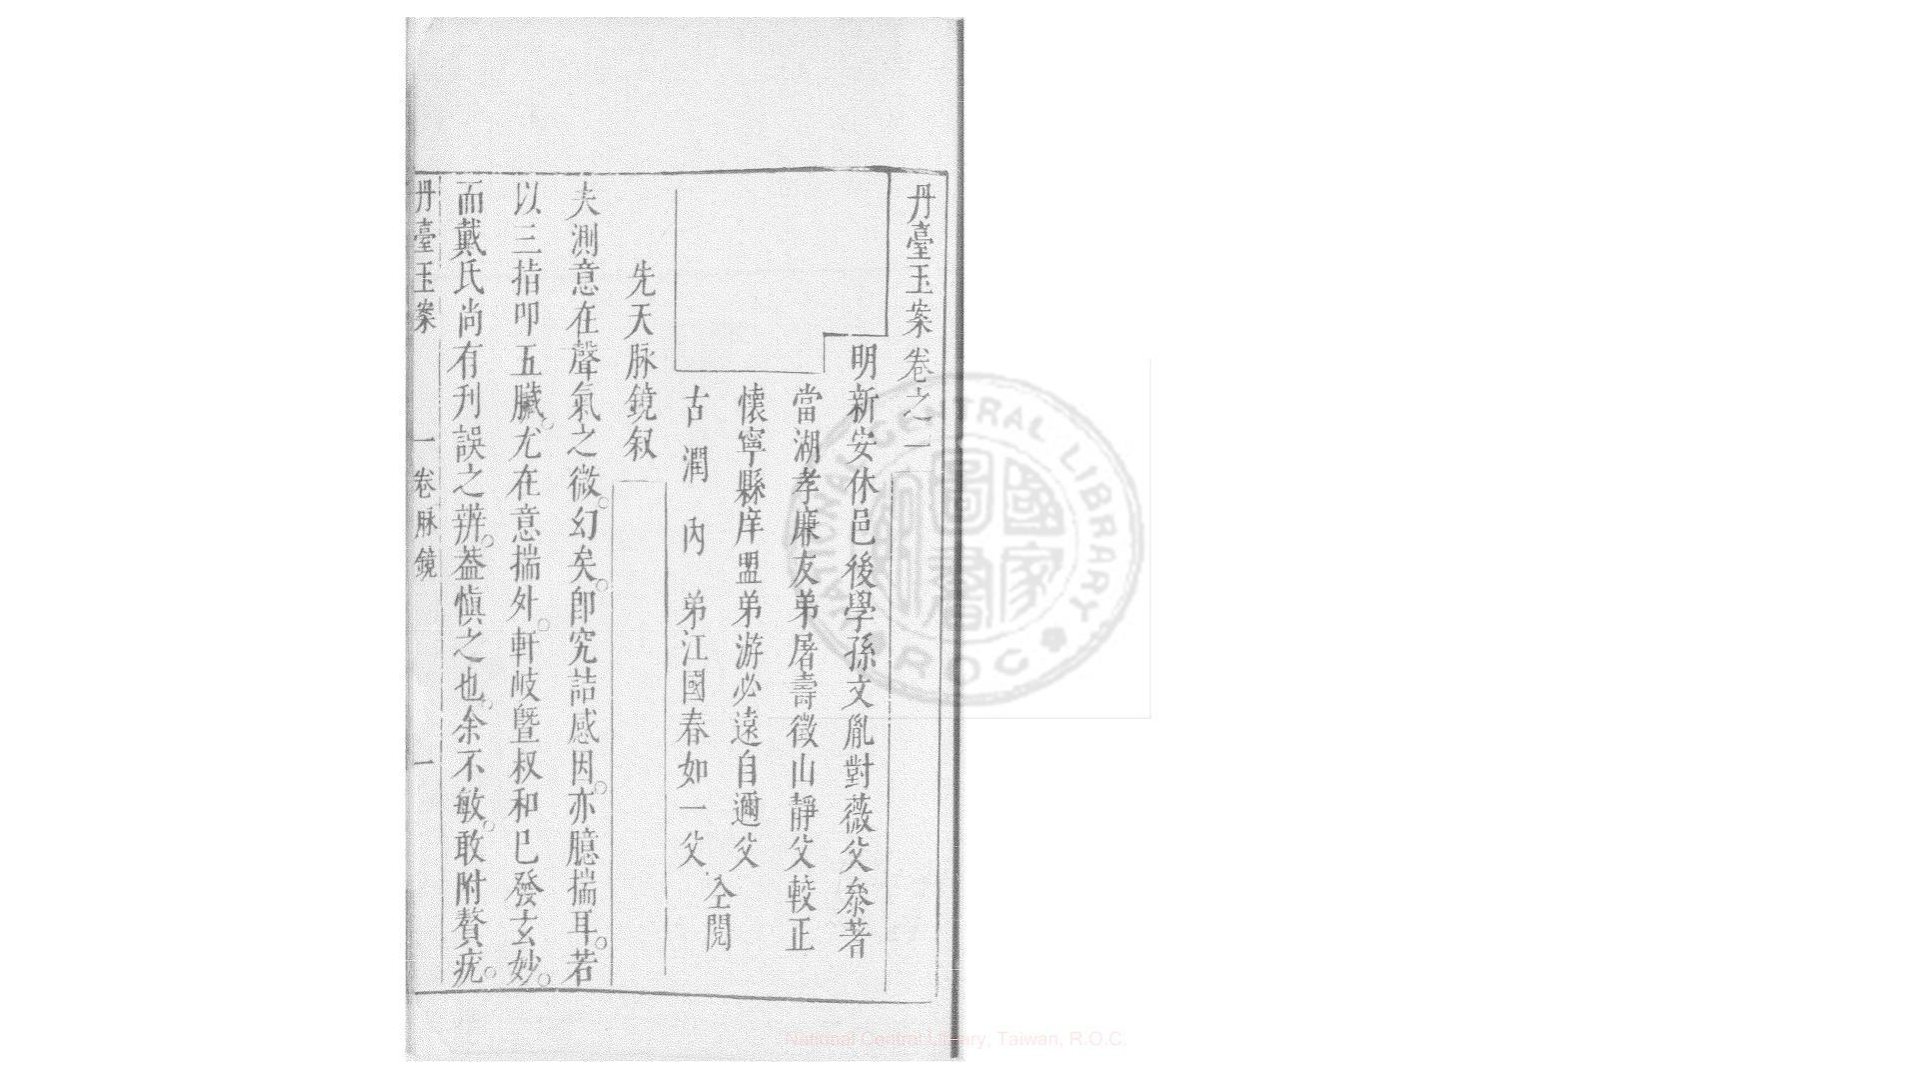 丹臺玉案卷之一
明新安休邑後學孫文胤對薇父叅著
當湖孝廉友弟屠壽徵山靜父較正
懷寧縣庠盟弟游必遠自邇父
古潤內弟江國春如一父
仝閱
先天脉鏡叙
夫測意在聲氣之微。幻矣。卽究詰感因。亦臆揣耳。若
以三指叩五臟。尤在意揣外。軒岐曁叔和巳發玄妙。
而戴氏尚有刋誤之辨。葢愼之也。余不敏。敢附贅疣。
丹臺玉案 一卷脉鏡 一
NATIONAL CENTRAL LIBRARY
國家圖書館
R O C
National Central Library, Taiwan, R.O.C.